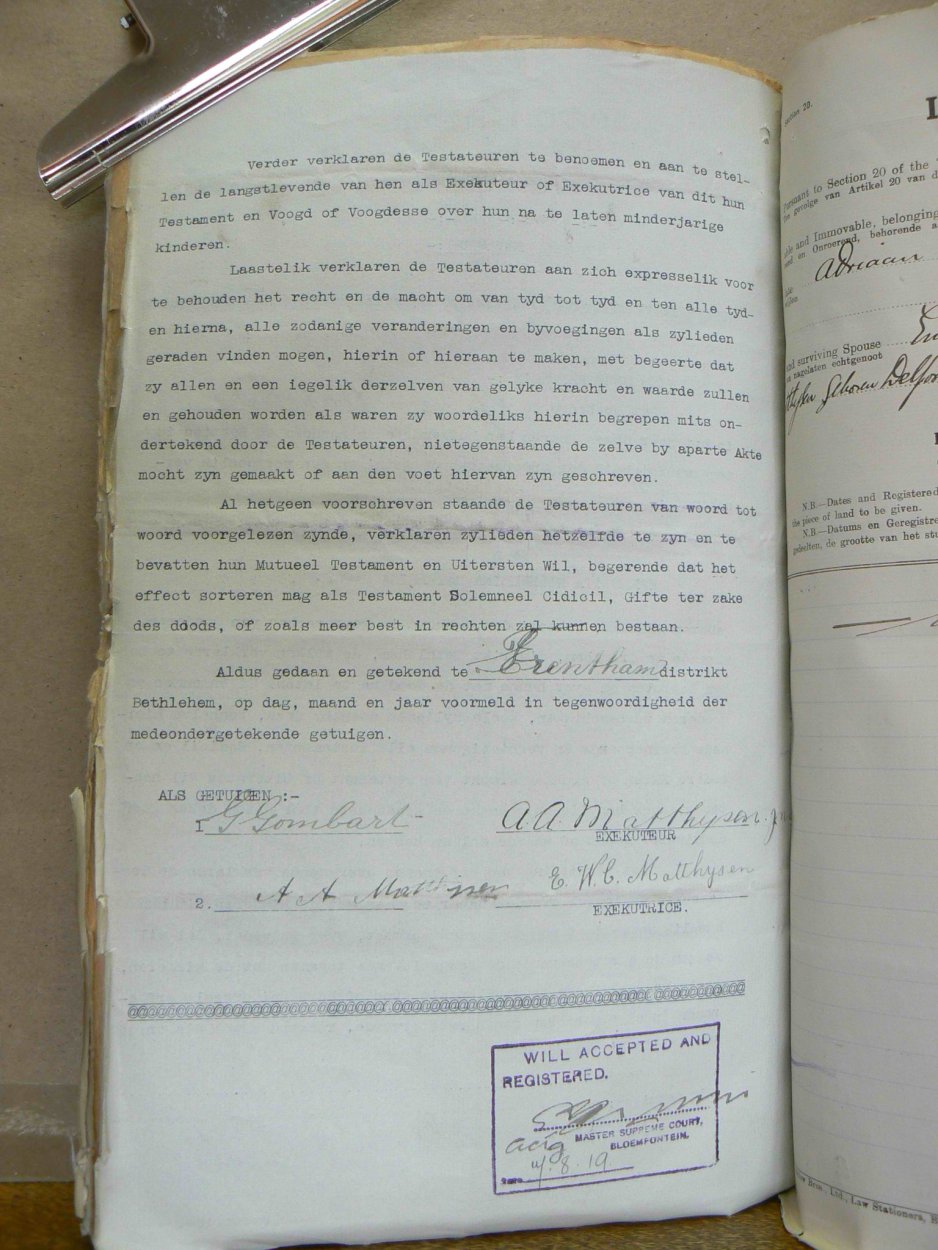 Verder verklaren de Testateuren te benoemen en aan te stel-
len de langstlevende van hen als Exekuteur of Exekutrice van dit hun
Testament en Voogd of Voogdesse over hun na te laten minderjarige
kinderen.
Laastelik verklaren de Testateuren aan zich expresselik voor
te behouden het recht en de macht om van tyd tot tyd en ten alle tyd-
en hierna, alle zodanige veranderingen en byvoegingen als zylieden
geraden vinden mogen, hierin of hieraan te maken, met begeerte dat
zy allen en een iegelik derzelven van gelyke kracht en waarde zullen
en gehouden worden als waren zy woordeliks hierin begrepen mits on-
dertekend door de Testateuren, nietegenstaande de zelve by aparte Akte
mocht zyn gemaakt of aan den voet hiervan zyn geschreven.
Al hetgeen voorschreven staande de Testateuren van woord tot
woord voorgelezen zynde, verklaren zylieden hetzelfde te zyn en te
bevatten hun Mutueel Testament en Uitersten Wil, begerende dat het
effect sorteren mag als Testament Solemneel Cidicil, Gifte ter zake
des doods, of zoals meer best in rechten zal kunnen bestaan.
Aldus gedaan en getekend te Trentham distrikt
Bethlehem, op dag, maand en jaar voormeld in tegenwoordigheid der
medeondergetekende getuigen.
ALS GETUIGEN :-
1 G Gombart
A. A. Matthysen. Jnr
EXEKUTEUR
2. A A Matthysen
E. W. C. Matthysen
EXEKUTRICE.
WILL ACCEPTED AND
REGISTERED.
MASTER SUPREME COURT,
BLOEMFONTEIN.
actg
Date 4/8.19
section 20.
L
Pursuant to Section 20 of the
gevolge van Artikel 20 van d
and Immovable, belonging
en Onroerend, behorende a
Adriaan
and surviving Spouse
nagelaten echtgenoot
geboren Delpor
N.B.—Dates and Registered
the piece of land to be given.
N.B.—Datums en Geregistre
gedeelten, de grootte van het stu
Bros. Ltd., Law Stationers, B